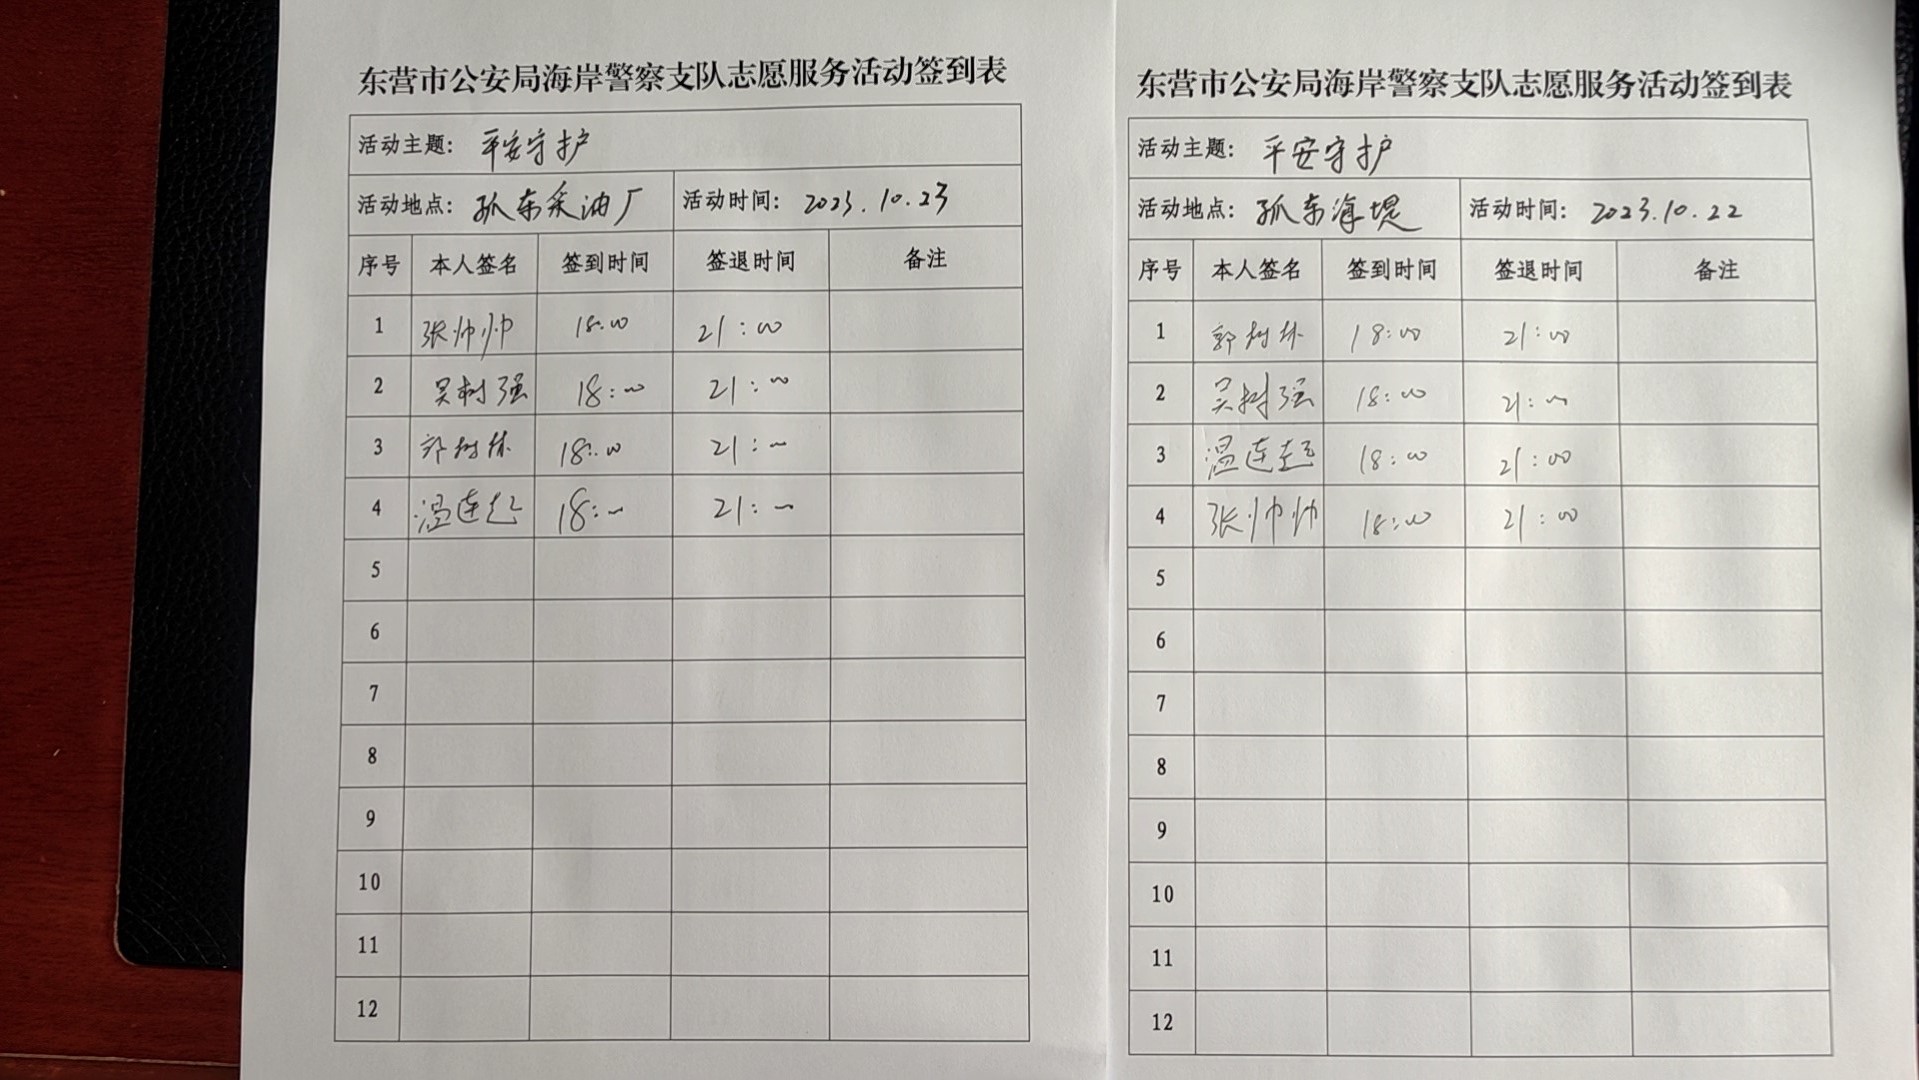 东营市公安局海岸警察支队志愿服务活动签到表
活动主题: 平安守护
活动地点: 孤东采油厂 活动时间: 2023.10.23
序号 本人签名 签到时间 签退时间 备注
1 张帅帅 18:00 21:00
2 吴树强 18:00 21:00
3 郭树林 18:00 21:00
4 温连起 18:00 21:00
5
6
7
8
9
10
11
12
东营市公安局海岸警察支队志愿服务活动签到表
活动主题: 平安守护
活动地点: 孤东海堤 活动时间: 2023.10.22
序号 本人签名 签到时间 签退时间 备注
1 郭树林 18:00 21:00
2 吴树强 18:00 21:00
3 温连起 18:00 21:00
4 张帅帅 18:00 21:00
5
6
7
8
9
10
11
12